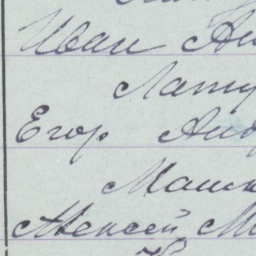 Иван Ан
Лату
Егор Анд
Машк
Алексей М